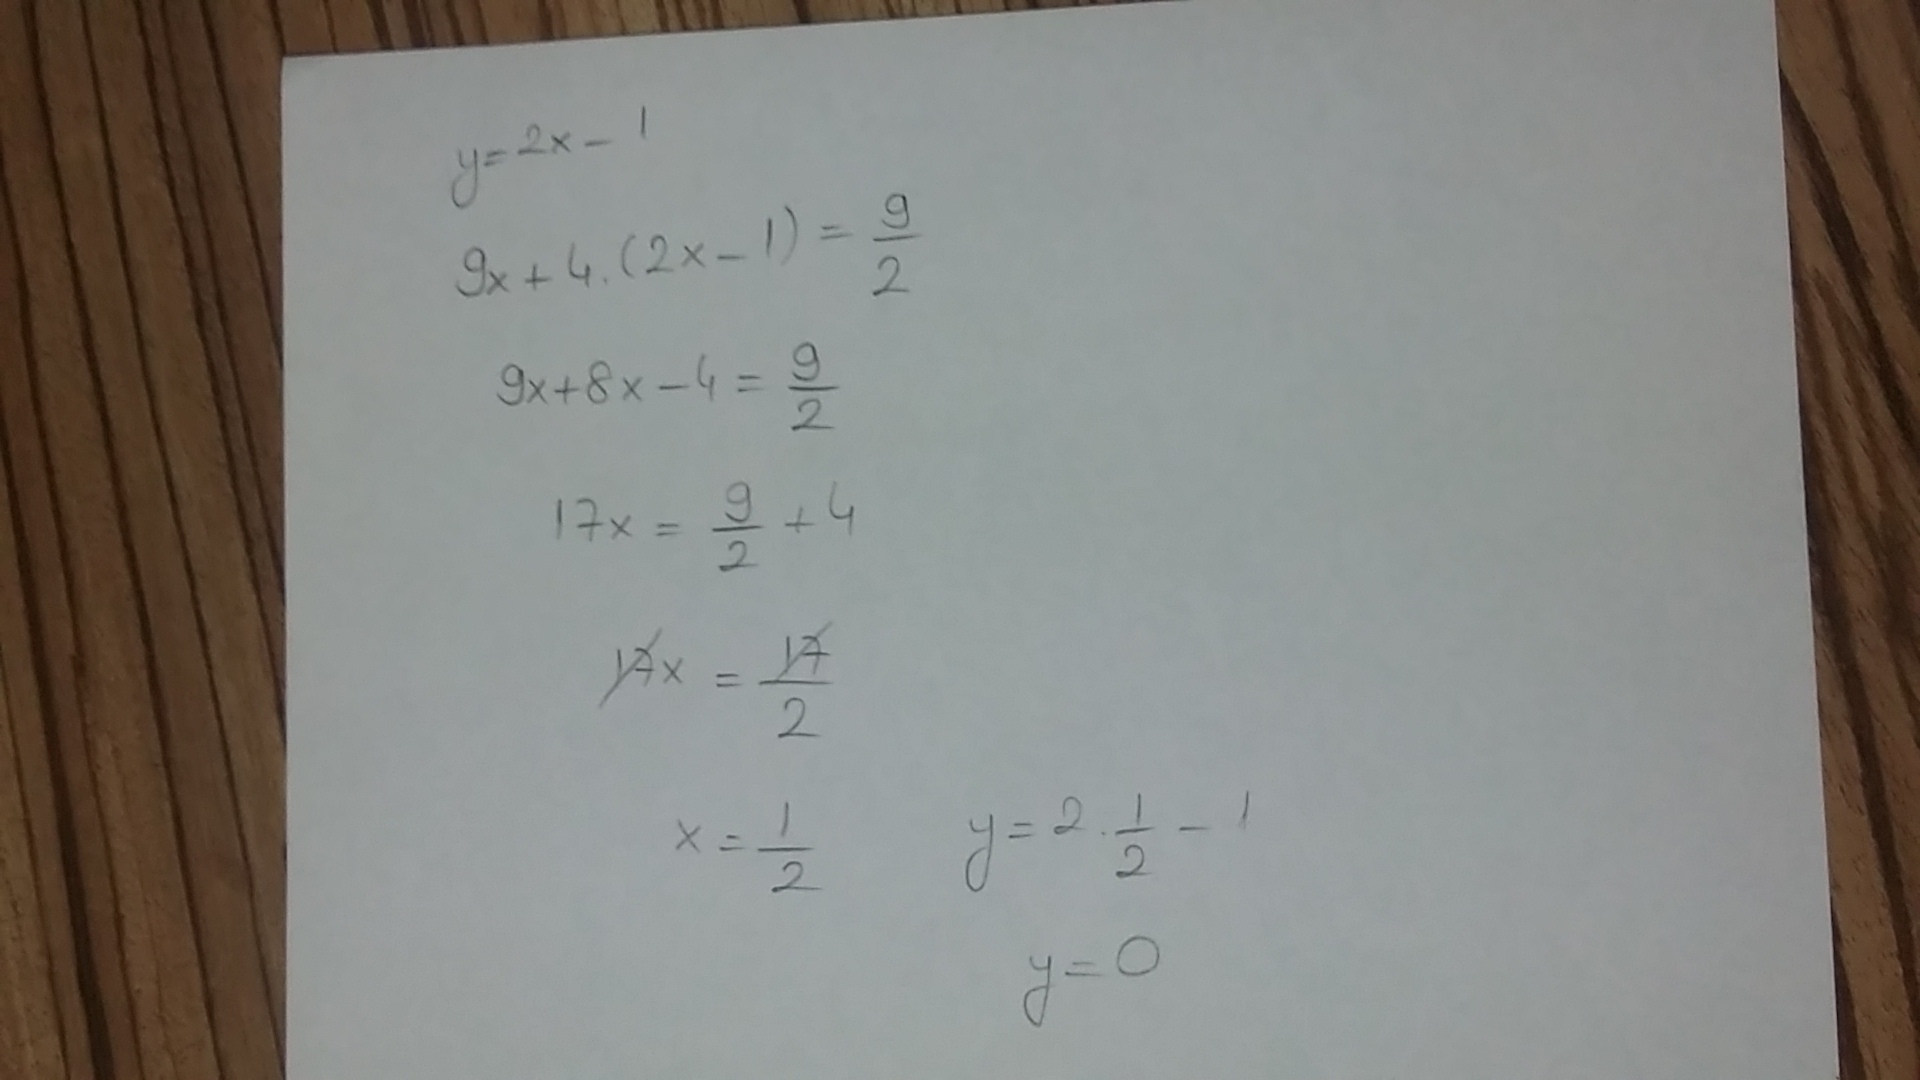 y=2x-1
9x+4.(2x-1)=9/2
9x+8x-4=9/2
17x=9/2+4
17x=17/2
x=1/2 y=2.1/2-1
y=0